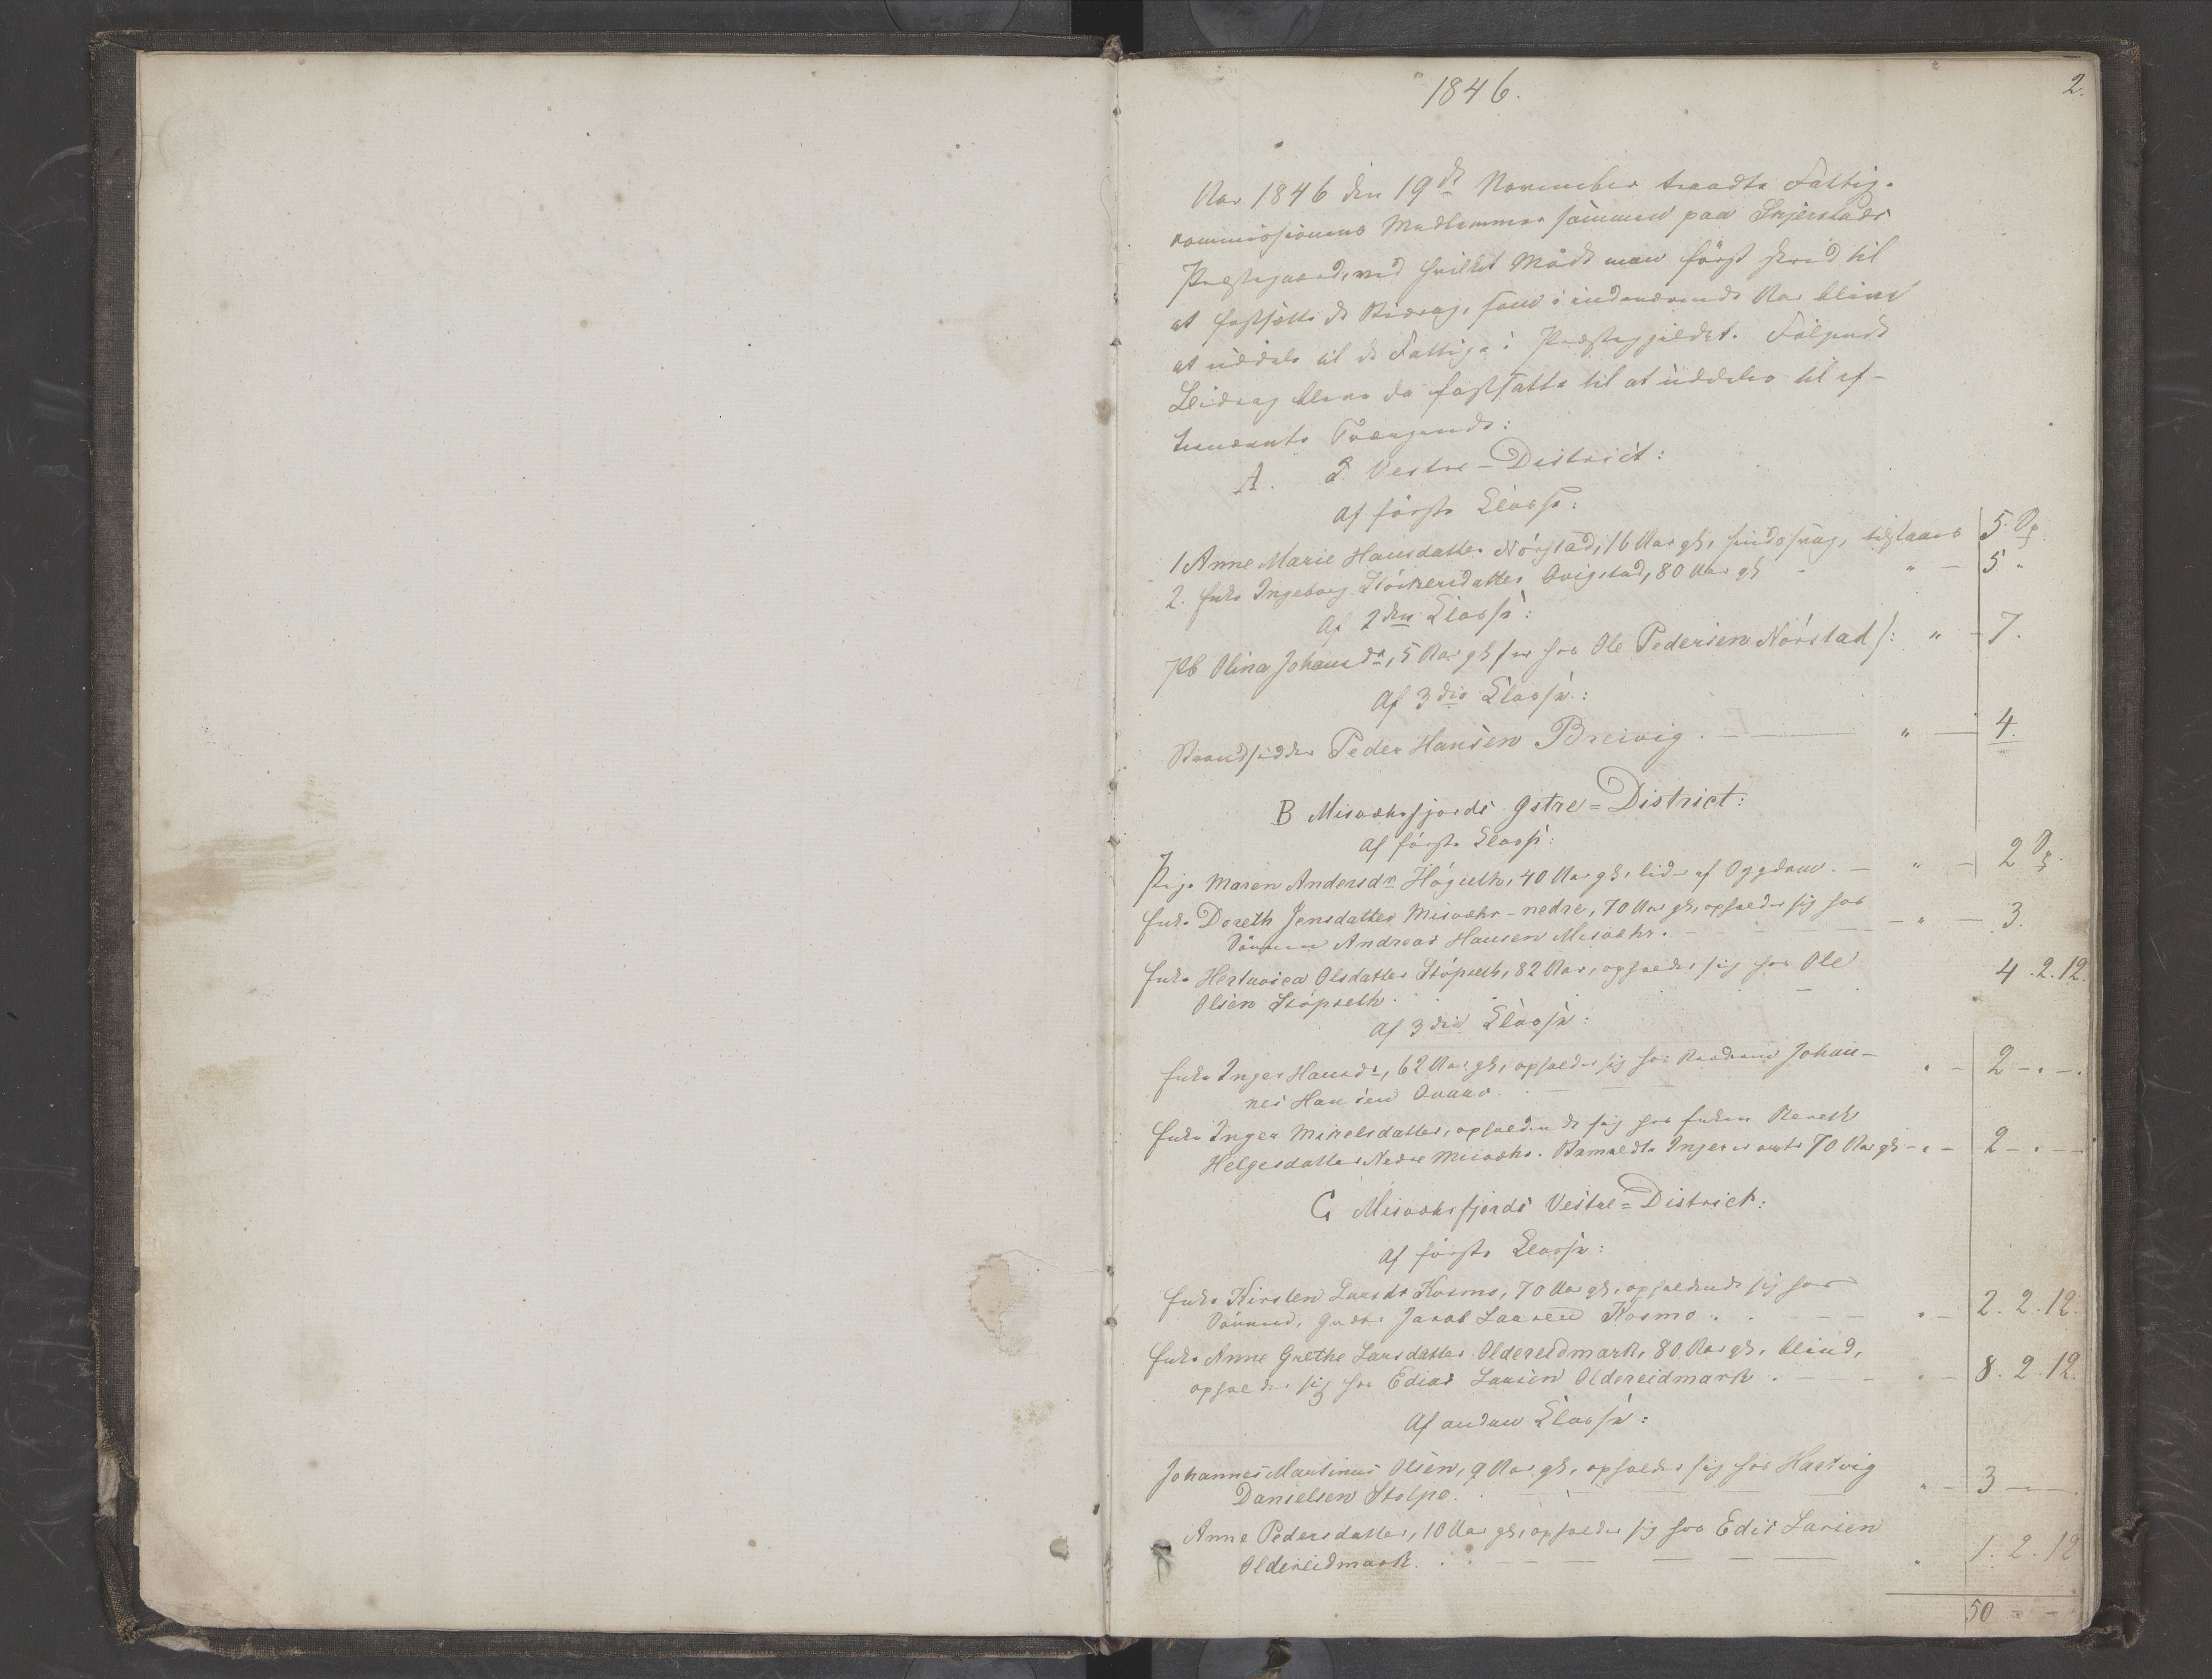 1846.
2.
Aar 1846 den 19de November traadte Fattig-
kommissionens Medlemmer sammen paa Skjerstads
Præstegaard, ved hvilket Møde man først skred til
at fastsætte de Bidrag, som i indeværende Aar bliver
at uddele til de Fattige i Præstegjeldet. Følgende
Bidrag bleve da fastsatte til at uddeles til ef-
ternævnte Trængende:
A. I Vestre-District:
Af første Classe:
1 Anne Marie Hansdatter Nørstad, 16 Aar gl., sindssvag, tilstaaes 5 Sp
2. Enke Ingeborg Zløckersdatter Qvigstad, 80 Aar gl " - 5 "
Af 2den Classe:
Pb Olina Johansdr, 5 Aar gl /er hos Ole Pedersen Nørstad/: " - 7.
Af 3die Classe:
Strandsidder Peder Hansen Breivig. - " - 4.
B Misværfjords Østre=District:
Af første Classe:
Pige Maren Andersdr Høgseth, 40 Aar gl., lider af Sygdom. - " - 2 Sp
Enke Doreth Jensdatter Misvær-nedre, 70 Aar gl., opholder sig hos
Sønnen Andreas Hansen Misvær. - " - 3.
Enke Olsdatter Støpseth, 82 Aar, opholder sig hos Ole
Olsen Støpseth. 4. 2. 12.
Af 3die Classe:
Enke Inger Hansdr, 62 Aar gl., opholder sig hos Johan-
nes Hansen " - 2 - " -
Enke Inger Mikelsdatter, opholdende sig hos Enken Bereth
Helgesdatter Nedre Misvær. Bemeldte Inger er omtr 70 Aar gl - " - 2 - " -
C Misværfjords Vestre=District:
Af første Classe:
Enke Kirsten Larsdr Kosmo, 70 Aar gl., opholdende sig hos
Sønnen, Jakob Larsen Kosmo. " - 2. 2. 12.
Enke Anne Grethe Larsdatter Oldereidmark, 80 Aar gl., blind,
opholder sig hos Edias Larsen Oldereidmark. " - 8. 2. 12.
Af anden Classe:
Johannes Martinus Olsen, 9 Aar gl., opholder sig hos Hartvig
Danielsen Stolpe. " - 3 -
Anne Pedersdatter, 10 Aar gl., opholder sig hos Edis Larsen
Oldereidmark. " 1. 2. 12
50 - -